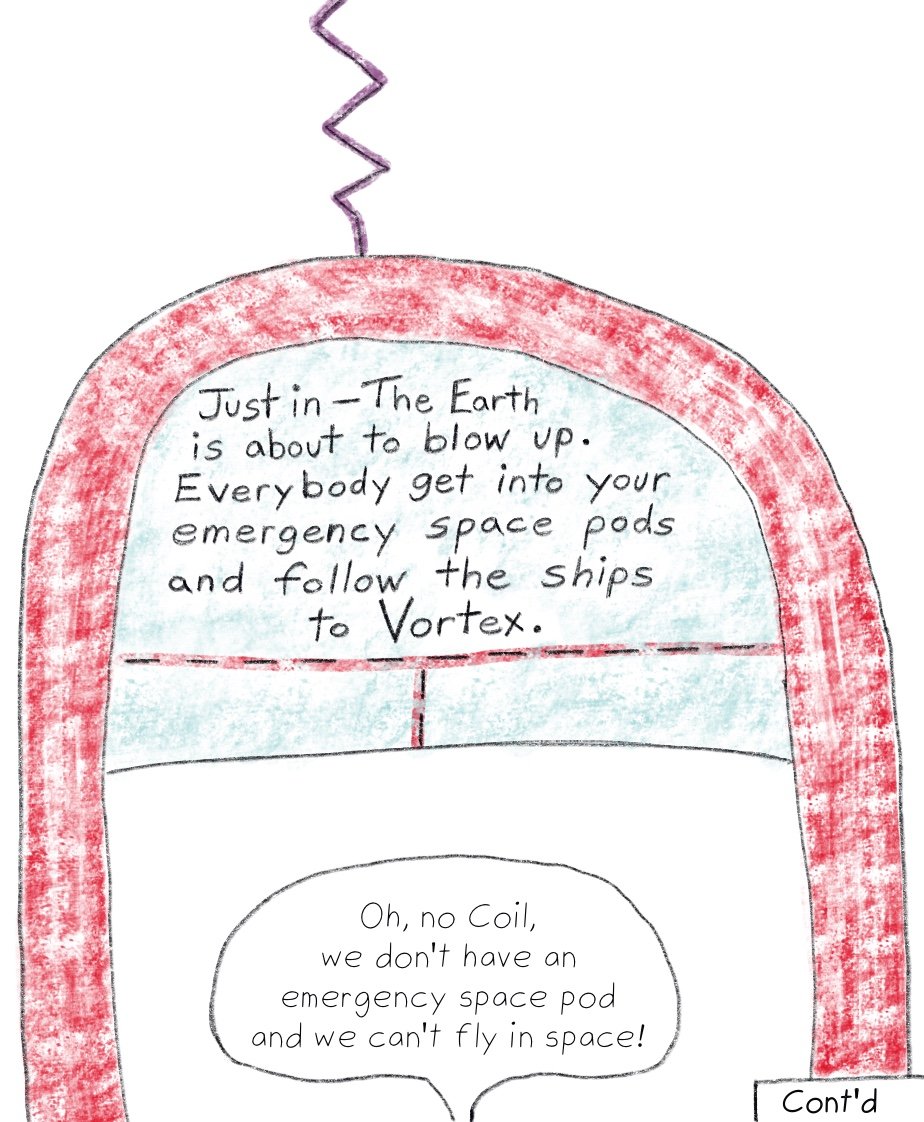 Just in – The Earth
is about to blow up.
Everybody get into your
emergency space pods
and follow the ships
to Vortex.
Oh, no Coil,
we don't have an
emergency space pod
and we can't fly in space!
Cont'd